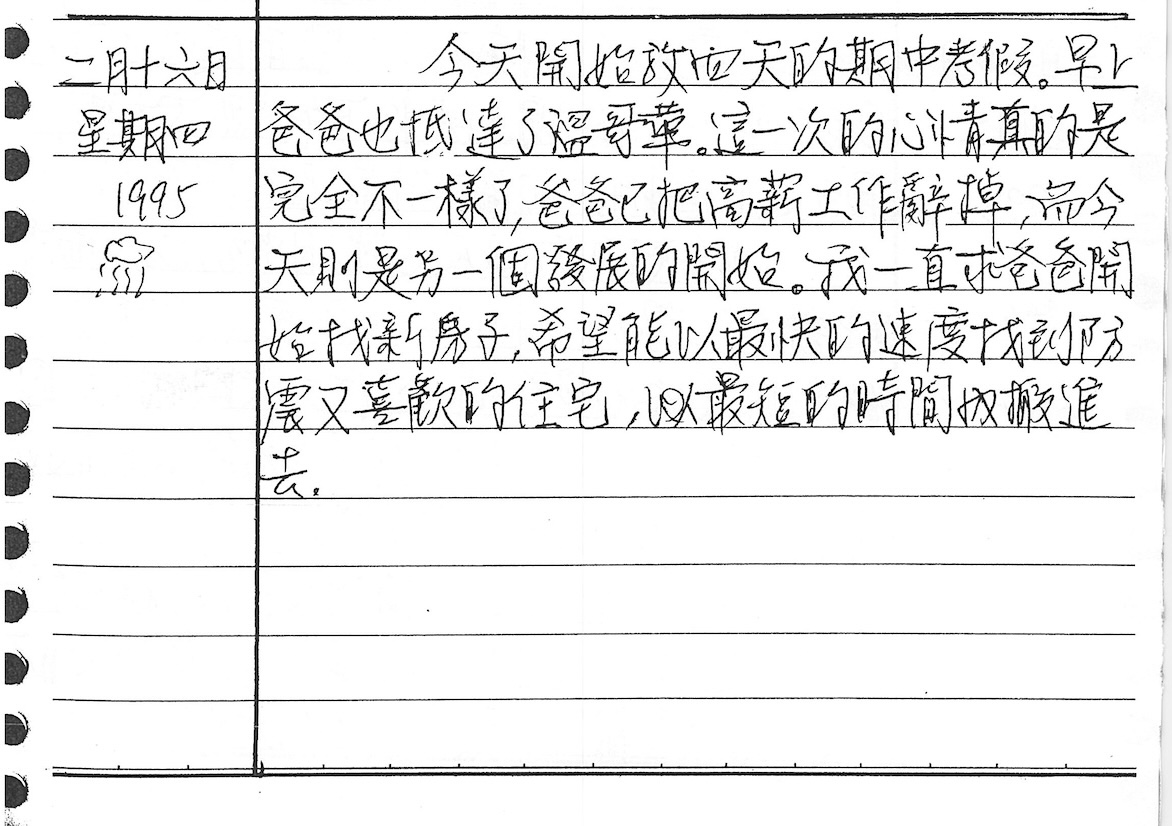 二月十六日
星期四
1995
今天開始放四天的期中考假。早上
爸爸也抵達了溫哥華。這一次的心情真的是
完全不一樣了,爸爸已把高薪工作辭掉,而今
天則是另一個發展的開始。我一直求爸爸開
始找新房子,希望能以最快的速度找到防
震又喜歡的住宅,以最短的時間內搬進
去.